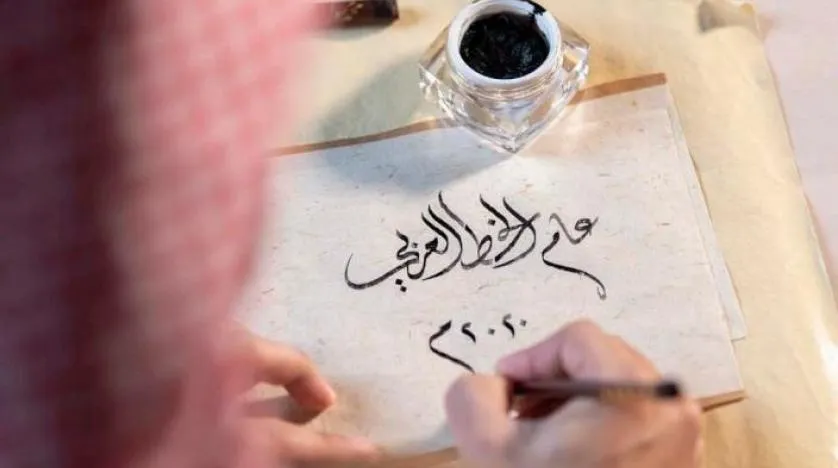 عام الخط العربي
٢٠٢٠م